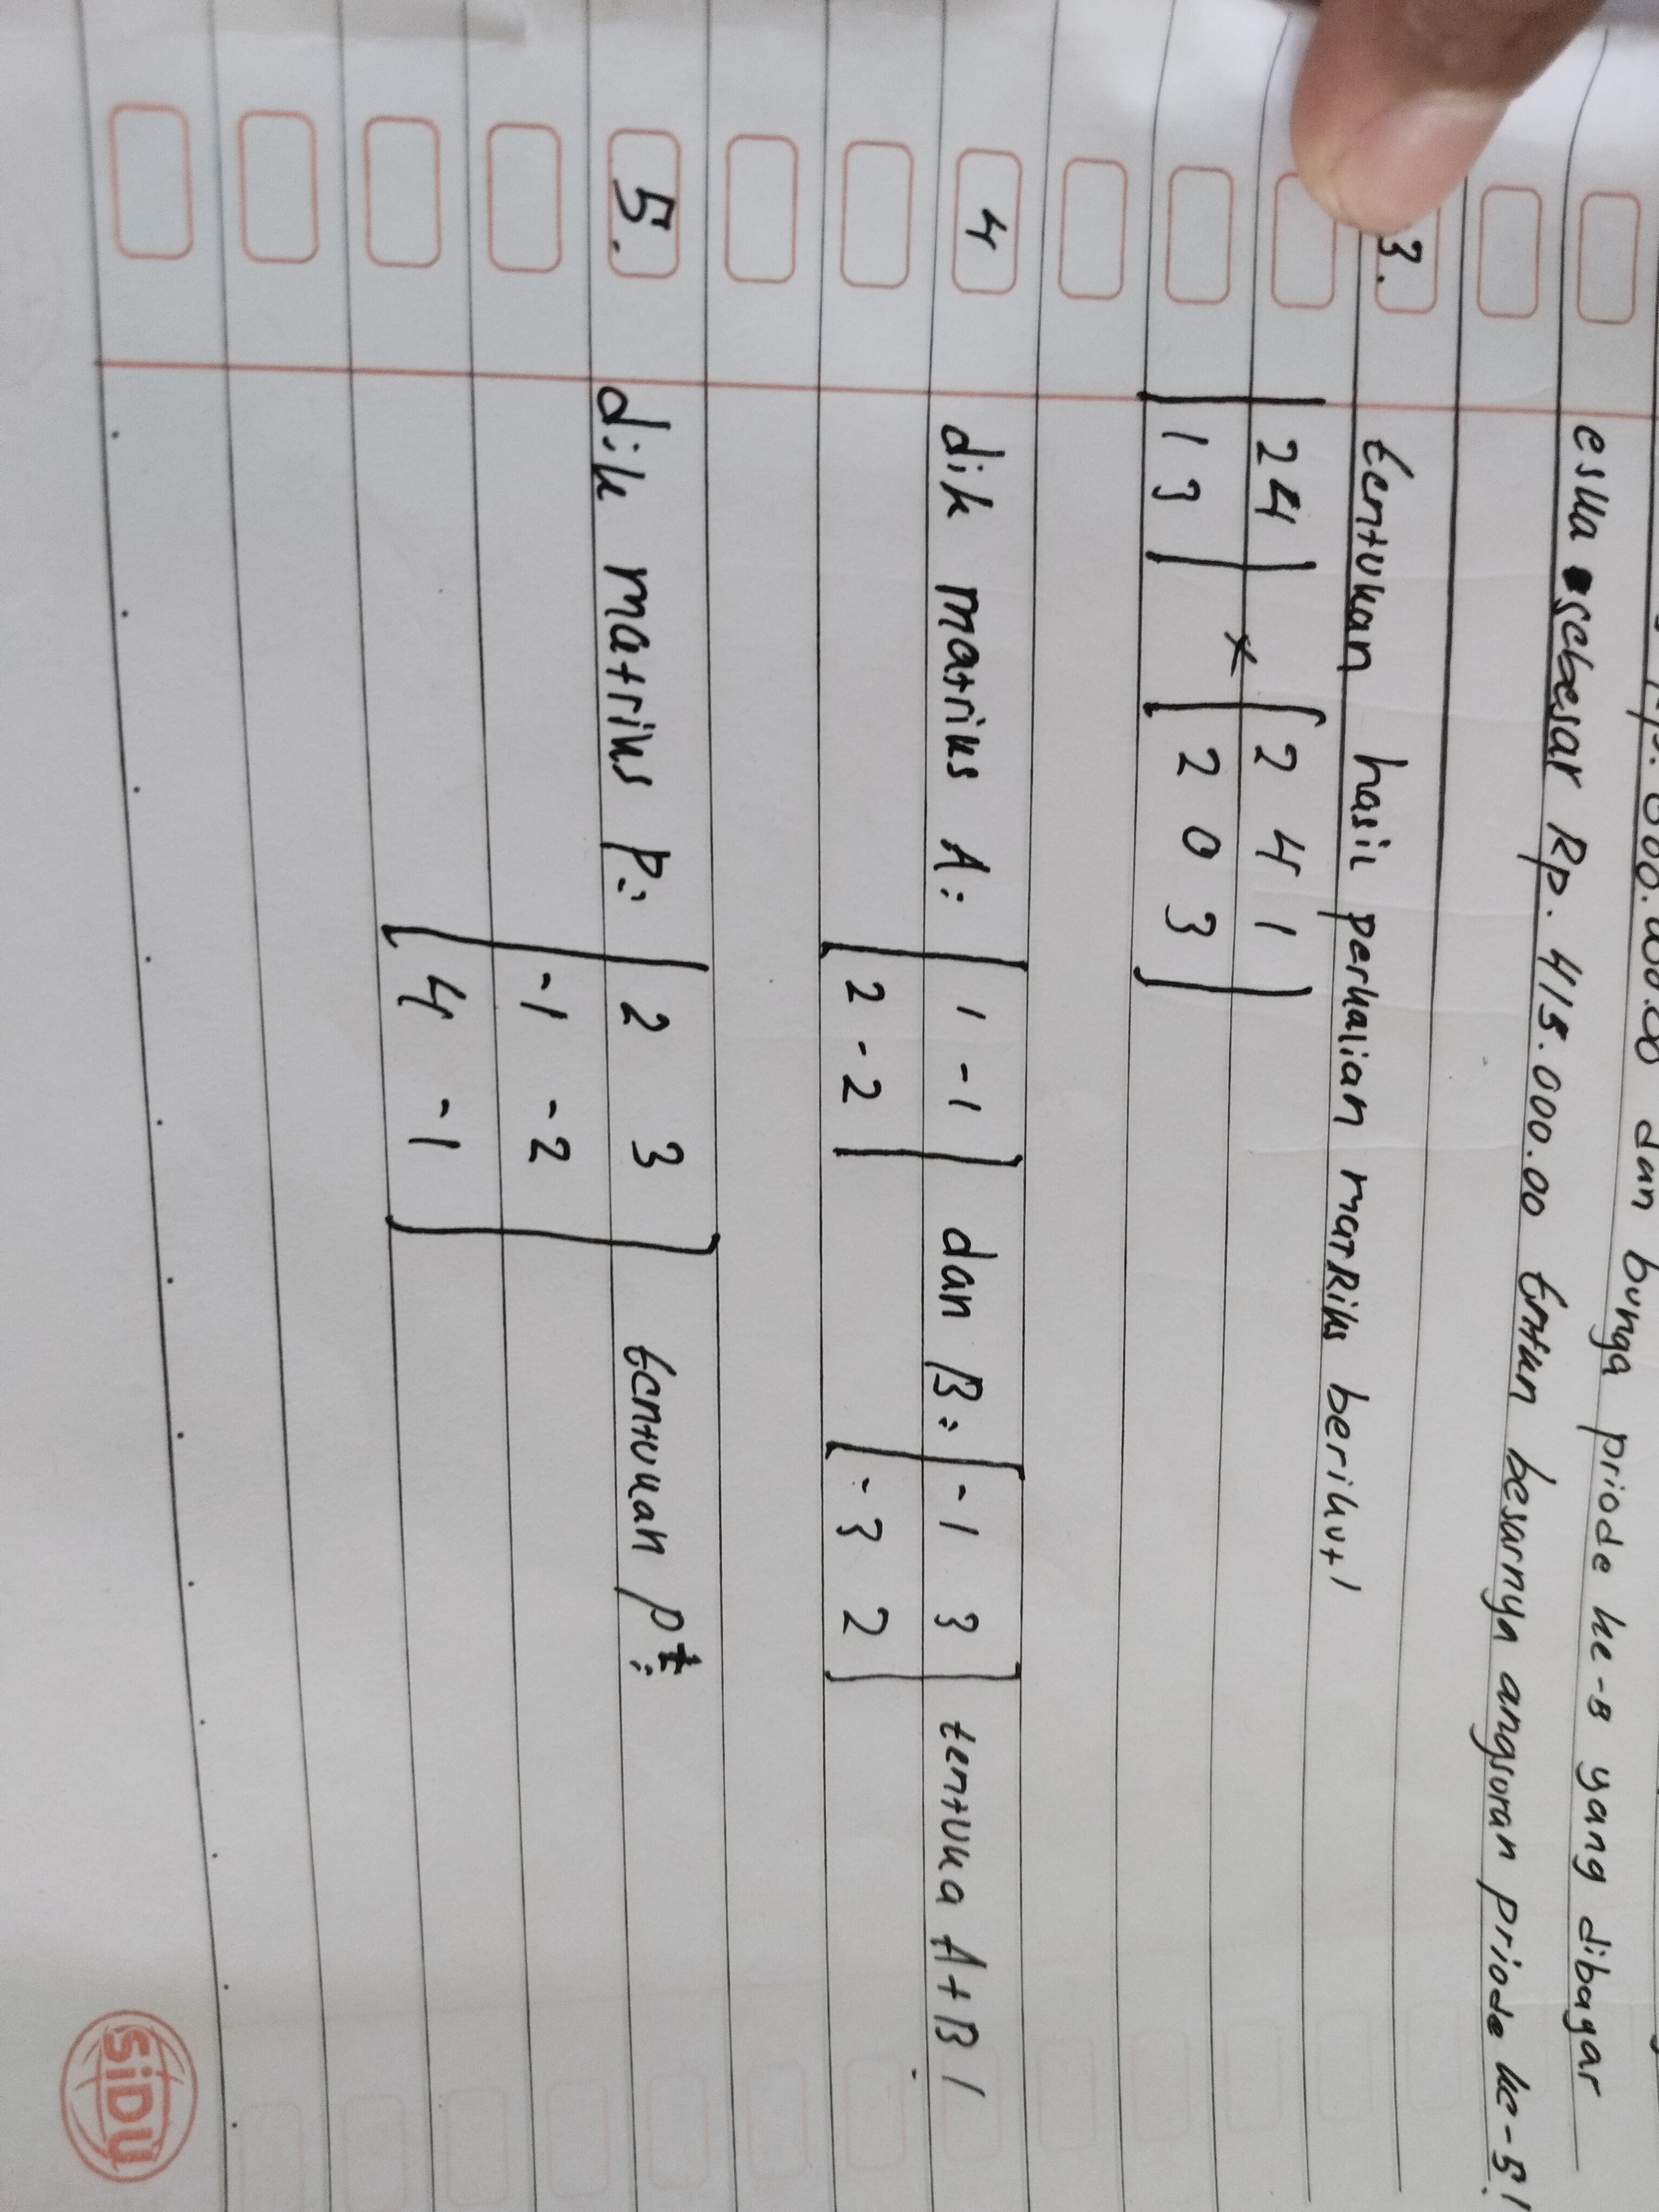 000.000.00 dan bunga priode ke-8 yang dibayar
eska sebesar Rp. 415.000.00 tntun besarnya angsuran priode ke-5!
3. tentukan hasil perkalian matRiks berikut!
[ 2 4 ] x [ 2 4 1 ]
[ 1 3 ] [ 2 0 3 ]
4 dik matriks A: [ 1 -1 ] dan B: [ -1 3 ] tentuka A+B!
[ 2 -2 ] [ -3 2 ]
5. dik matriks P: [ 2 3 ] tentukan P^t:
-1 -2
[ 4 -1 ]
SiDU